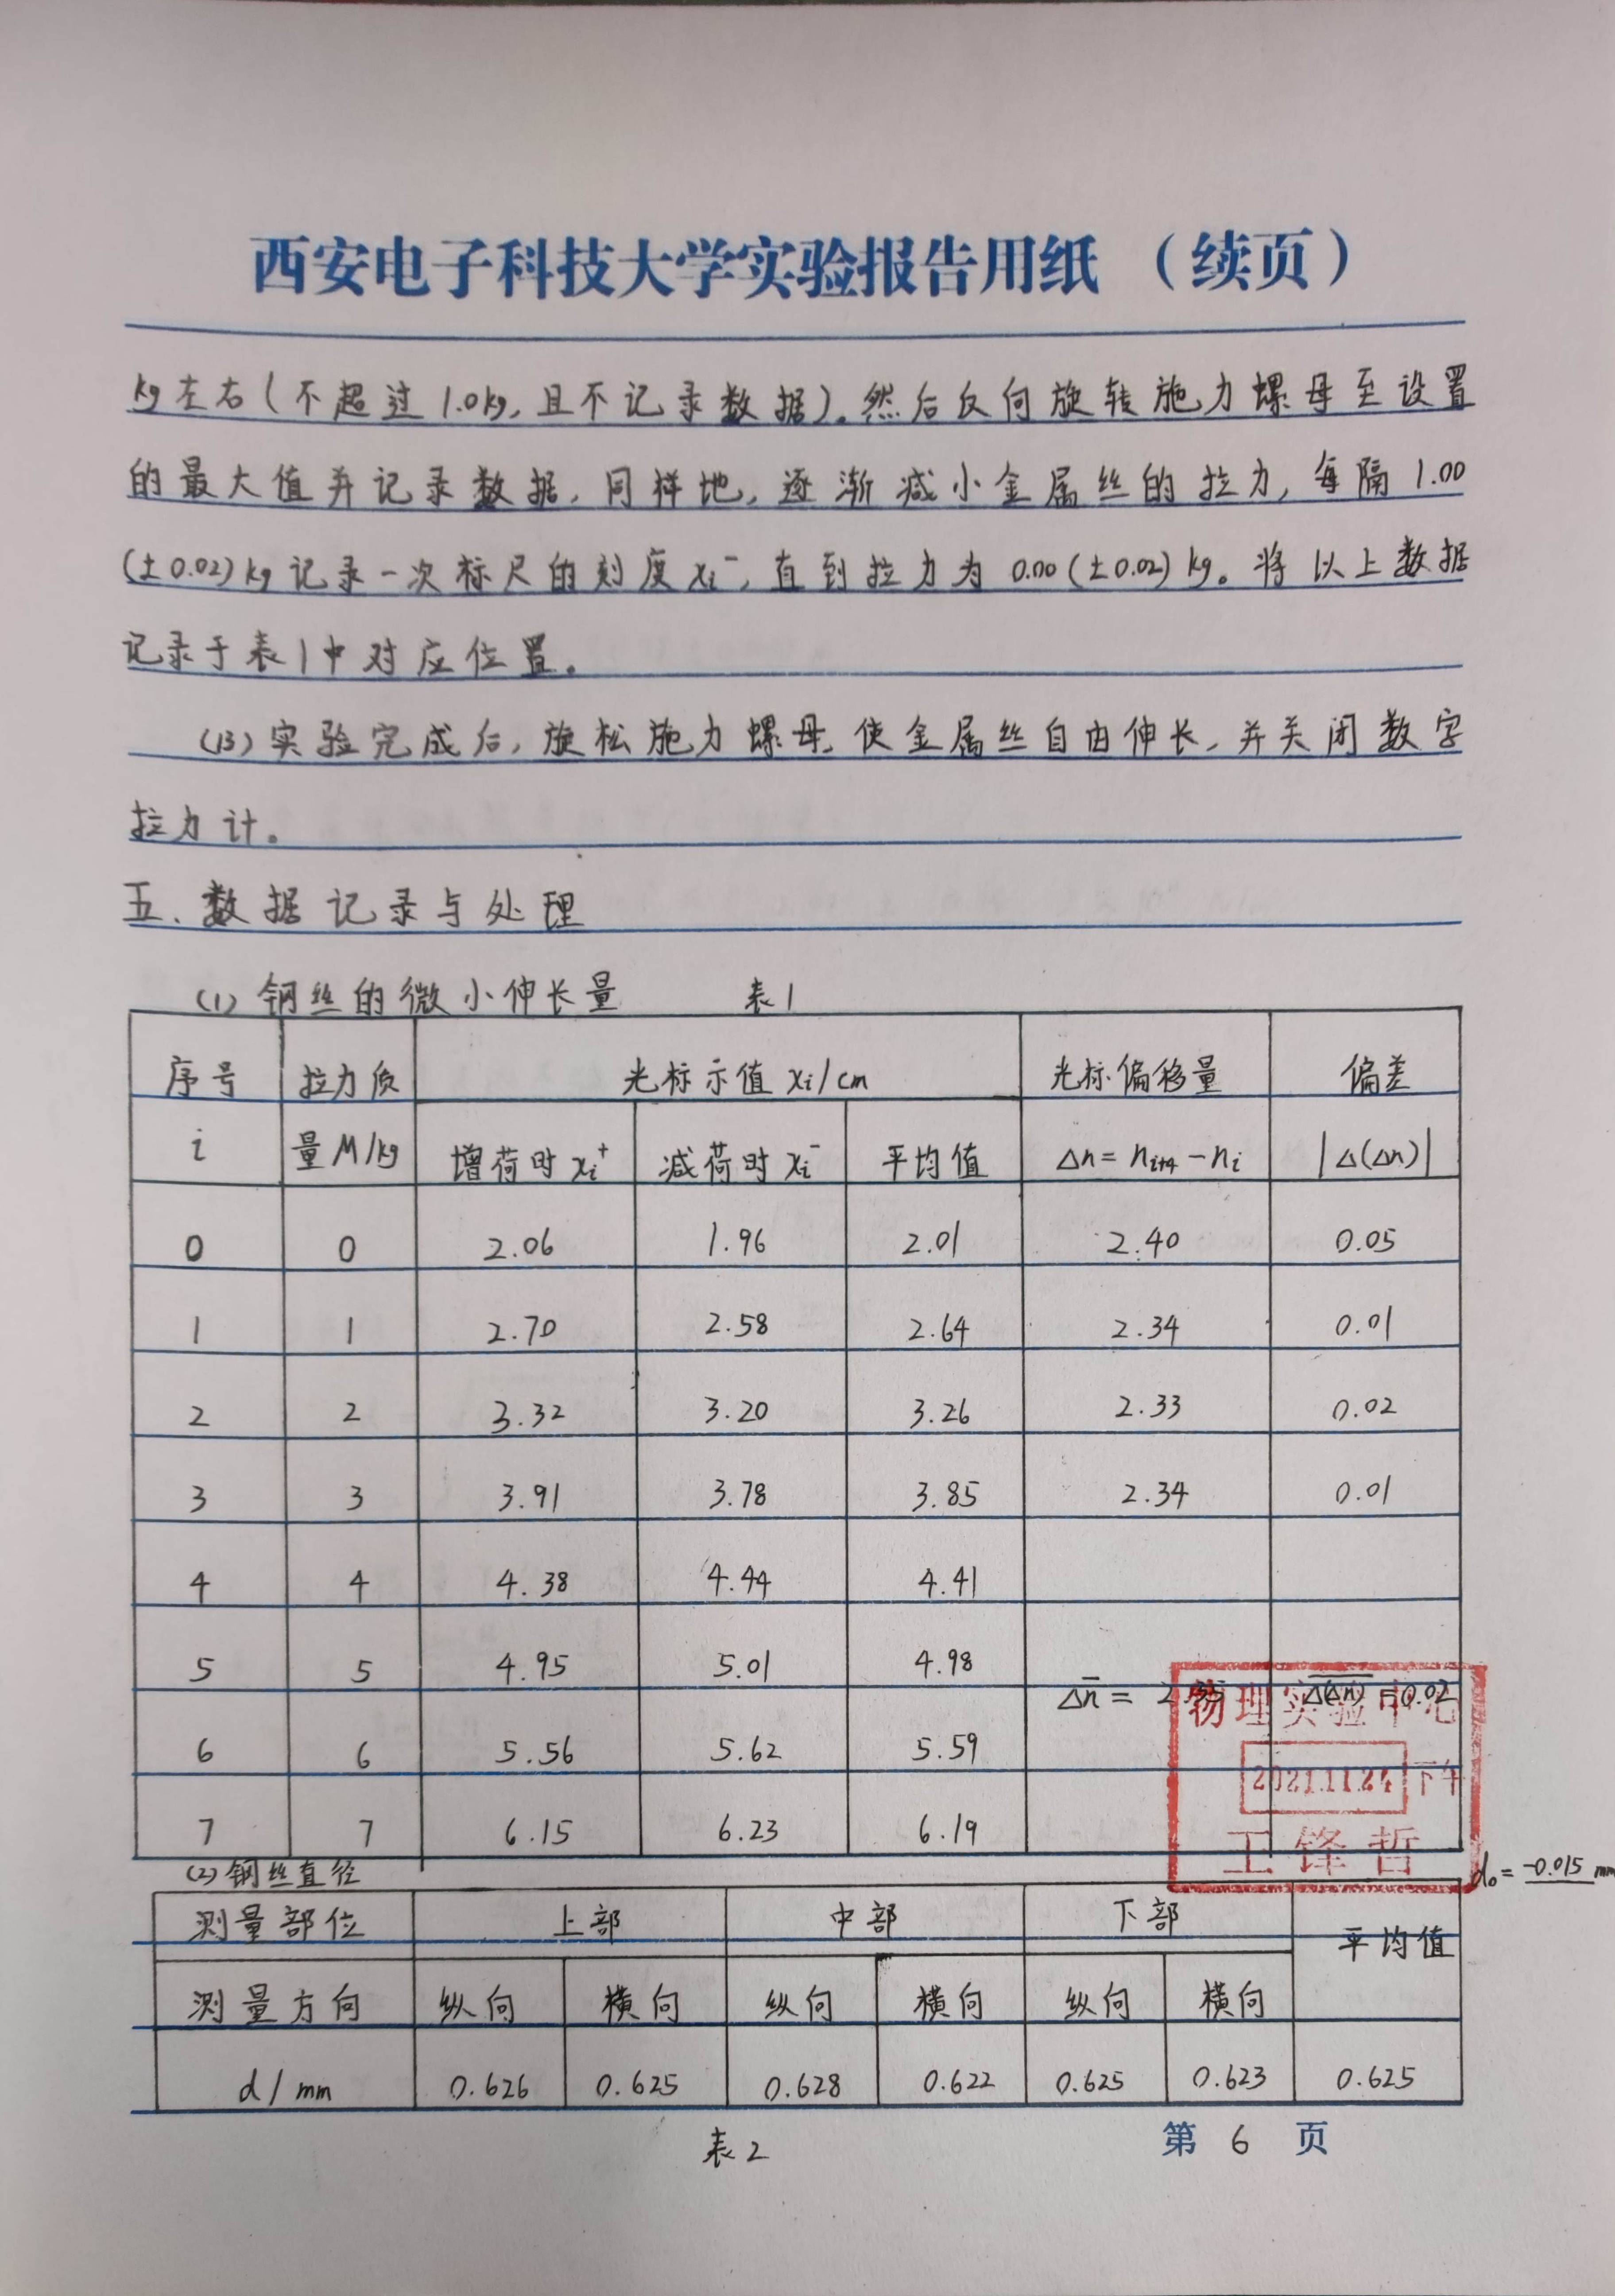 西安电子科技大学实验报告用纸 （续页）
kg左右(不超过1.0kg,且不记录数据)。然后反向旋转施力螺母至设置
的最大值并记录数据,同样地,逐渐减小金属丝的拉力,每隔1.00
(±0.02)kg记录一次标尺的刻度xi⁻,直到拉力为0.00(±0.02)kg。将以上数据
记录于表1中对应位置。
(13)实验完成后,旋松施力螺母,使金属丝自由伸长,并关闭数字
拉力计。
五、数据记录与处理
(1)钢丝的微小伸长量 表1
序号 拉力质 光标示值xi/cm 光标偏移量 偏差
i 量M/kg 增荷时xi⁺ 减荷时xi⁻ 平均值 Δn=n_{i+4}-n_i |Δ(Δn)|
0 0 2.06 1.96 2.01 2.40 0.05
1 1 2.70 2.58 2.64 2.34 0.01
2 2 3.32 3.20 3.26 2.33 0.02
3 3 3.91 3.78 3.85 2.34 0.01
4 4 4.38 4.44 4.41
5 5 4.95 5.01 4.98
Δn̄= 2.35 Δ(Δn)=0.02
物理实验中心
6 6 5.56 5.62 5.59
2021.11.24 下午
7 7 6.15 6.23 6.19
王锋哲
(2)钢丝直径 d₀=-0.015 mm
测量部位 上部 中部 下部 平均值
测量方向 纵向 横向 纵向 横向 纵向 横向
d/mm 0.626 0.625 0.628 0.622 0.625 0.623 0.625
表2
第 6 页